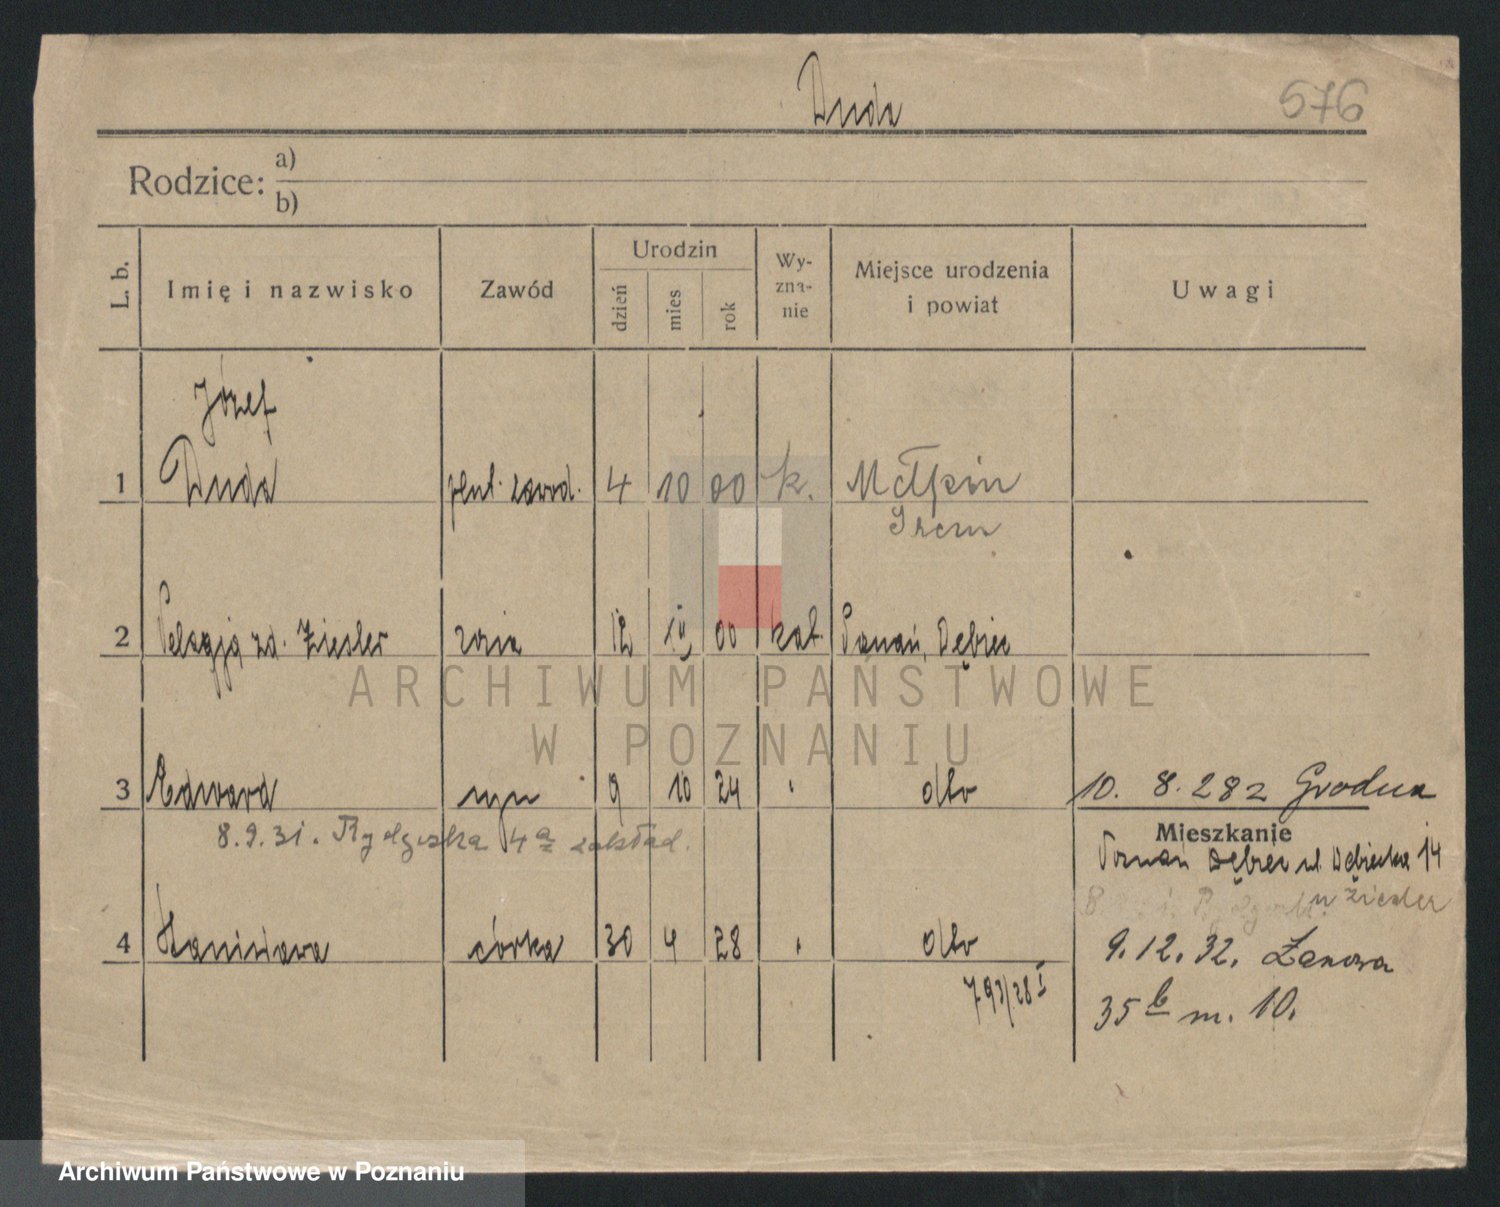 Duda
576
Rodzice: a)
b)
L. b.
Imię i nazwisko
Zawód
Urodzin
dzień
mies
rok
Wy-
zna-
nie
Miejsce urodzenia
i powiat
Uwagi
Józef
1 Duda plut. zawod. 4 10 00 k. Mełpin
Śrem
2 Pelagja zd. Ziesler żona 12 00 kat. Poznań, Dębiec
ARCHIWUM PAŃSTWOWE
W POZNANIU
3 Edward syn 9 10 24 dto 10. 8. 28 z Grodna
8.9.31. Rydgyska 4a zakład.
Mieszkanie
Poznań Dębiec ul. Dębiecka 14
u Ziesler
4 Stanisława córka 30 4 28 dto 9.12.32. Łanowa
35 b m. 10.
Archiwum Państwowe w Poznaniu